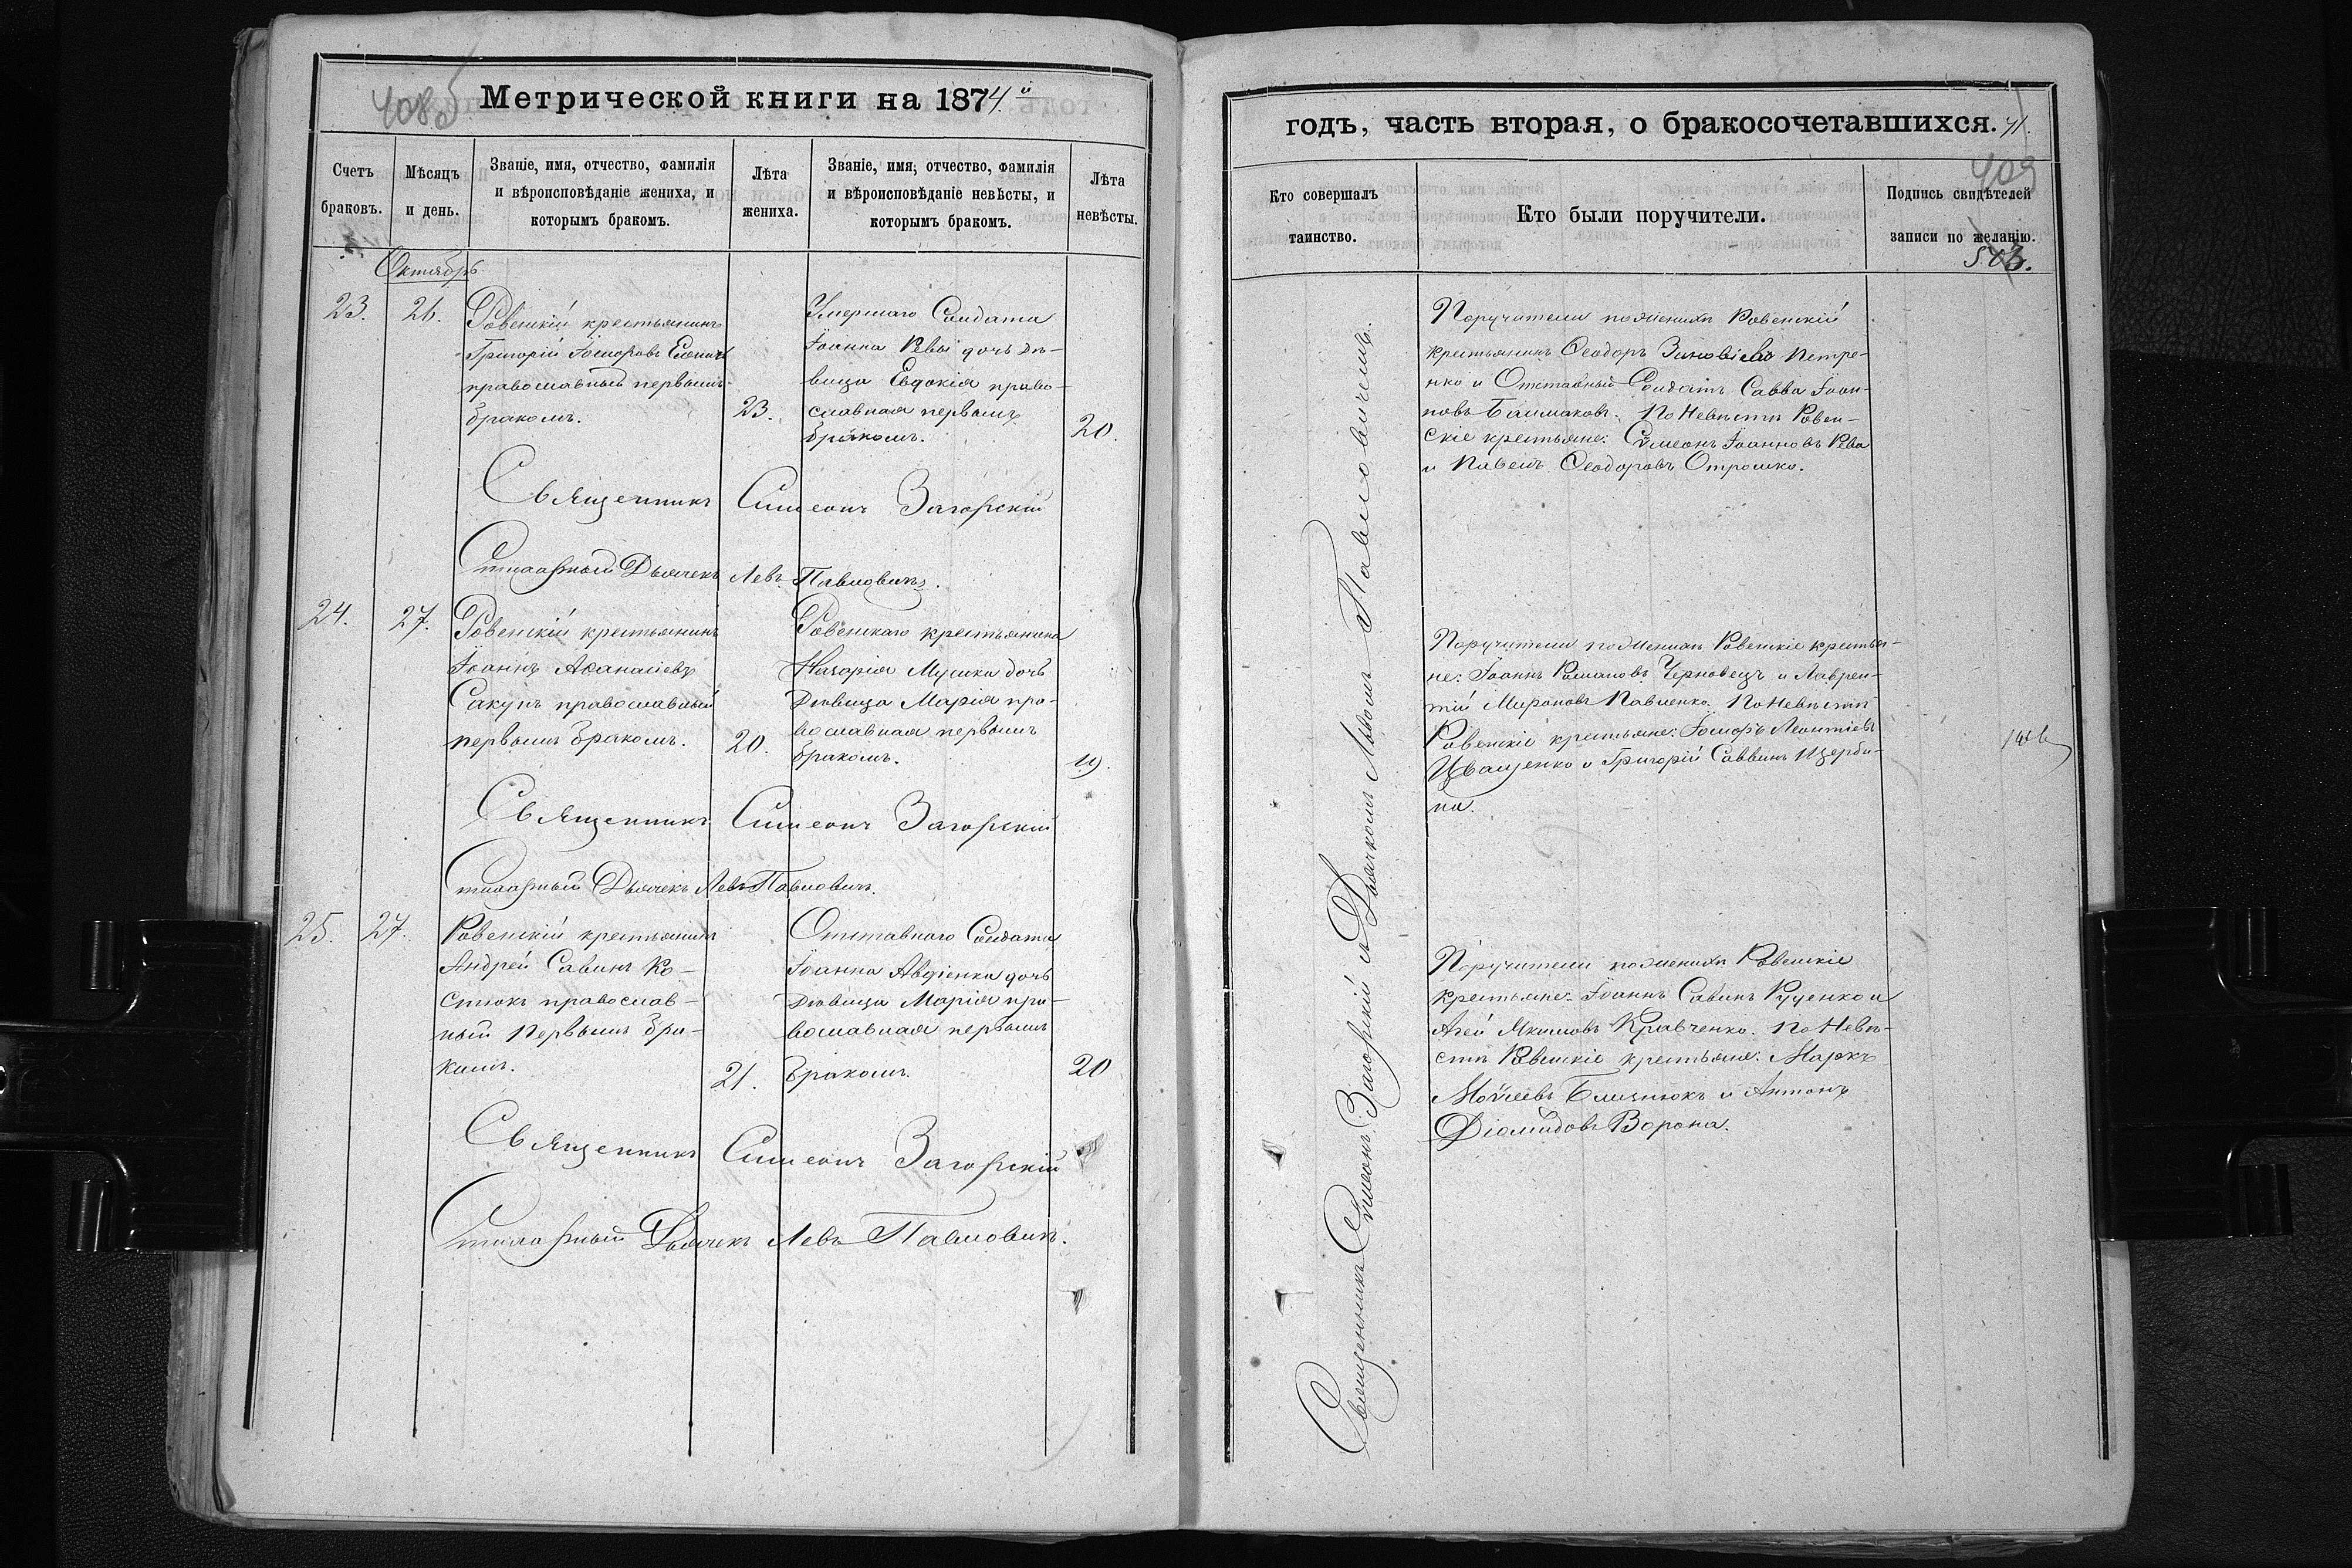 408
Метрической книги на 1874й
Счетъ браковъ.
Мѣсяцъ и день.
Званіе, имя, отчество, фамилія
и вѣроисповѣданіе жениха, и
которымъ бракомъ.
Лѣта жениха.
Званіе, имя, отчество, фамилія
и вѣроисповѣданіе невѣсты, и
которымъ бракомъ.
Лѣта невѣсты.
Октябрь
23.
26.
Ровенскій крестьянинъ
Григорій Іосифовъ
православный первымъ
бракомъ.
23.
Умершаго Солдата
Іоанна Ревы дочь дѣ-
вица Евдокія право-
славная первымъ
бракомъ.
20.
Священникъ Симеонъ Загорскій
Дьячекъ Левъ Павловичъ.
24.
27.
Ровенскій крестьянинъ
Іоаннъ Аѳанасіевъ
Сакунъ православный
первымъ бракомъ.
20.
Ровенскаго крестьянина
Назарія Мушки дочь
дѣвица Марія пра-
вославная первымъ
бракомъ.
19.
Священникъ Симеонъ Загорскій
Дьячекъ Левъ Павловичъ.
25.
27.
Ровенскій крестьянинъ
Андрей Савинъ Ко-
стюкъ православ-
ный первымъ бра-
комъ.
21.
Отставнаго Солдата
Іоанна Авдіенка дочь
дѣвица Марія пра-
вославная первымъ
бракомъ.
20
Священникъ Симеонъ Загорскій
Дьячекъ Левъ Павловичъ.
годъ, часть вторая, о бракосочетавшихся.
41.
409
Кто совершалъ
таинство.
Кто были поручители.
Подпись свидѣтелей
записи по желанію.
Священникъ Симеонъ Загорскій съ Дьячкомъ Львомъ Павловичемъ.
Поручители по женихѣ Ровенскій
крестьянинъ Ѳеодоръ Зиновіевъ Петре-
нко и Отставный Солдатъ Савва Іоан-
новъ Башмаковъ. По Невѣстѣ Ровен-
скіе крестьяне: Сѵмеонъ Іоанновъ Рева
и Павелъ Ѳеодоровъ Отрошко.
Поручители по женихѣ Ровенскіе крестья-
не: Іоаннъ Романовъ Черновецъ и Лаврен-
тій Мироновъ Павленко. По Невѣстѣ
Ровенскіе крестьяне: Іосифъ Леонтіевъ
Иващенко и Григорій Саввинъ Щерби-
на.
Поручители по женихѣ Ровенскіе
крестьяне: Іоаннъ Савинъ Руденко и
Агей Акимовъ Кравченко. По Невѣ-
стѣ Ровенскіе крестьяне: Маркъ
Моѵсеевъ Близнюкъ и Антонъ
Діомидовъ Ворона.